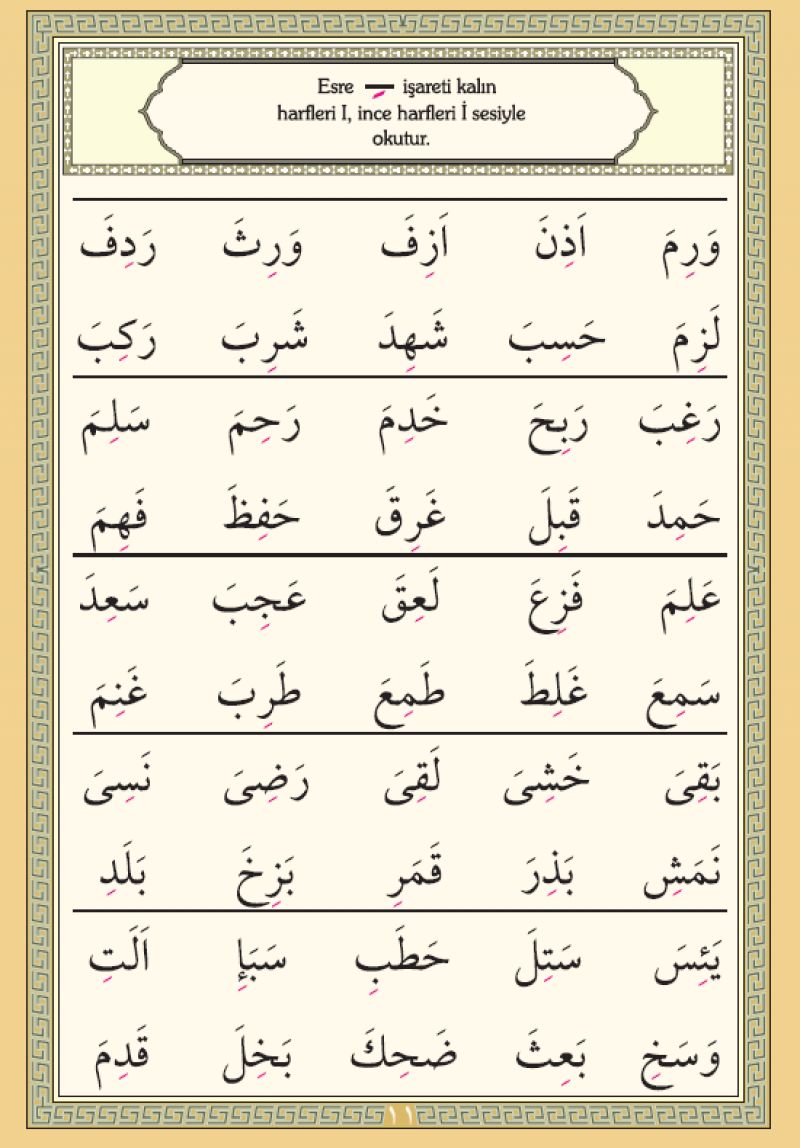 Esre ـِ işareti kalın
harfleri I, ince harfleri İ sesiyle
okutur.
وَرِمَ اَذِنَ اَزِفَ وَرِثَ رَدِفَ
لَزِمَ حَسِبَ شَهِدَ شَرِبَ رَكِبَ
رَغِبَ رَبِحَ خَدِمَ رَحِمَ سَلِمَ
حَمِدَ قَبِلَ غَرِقَ حَفِظَ فَهِمَ
عَلِمَ فَزِعَ لَعِقَ عَجِبَ سَعِدَ
سَمِعَ غَلِطَ طَمِعَ طَرِبَ غَنِمَ
بَقِىَ خَشِىَ لَقِىَ رَضِىَ نَسِىَ
نَمَشِ بَذِرَ قَمَرِ بَزِخَ بَلَدِ
يَئِسَ سَتِلَ حَطَبِ سَبَاٍِ اَلَتِ
وَسَخِ بَعِثَ ضَحِكَ بَخِلَ قَدِمَ
١١